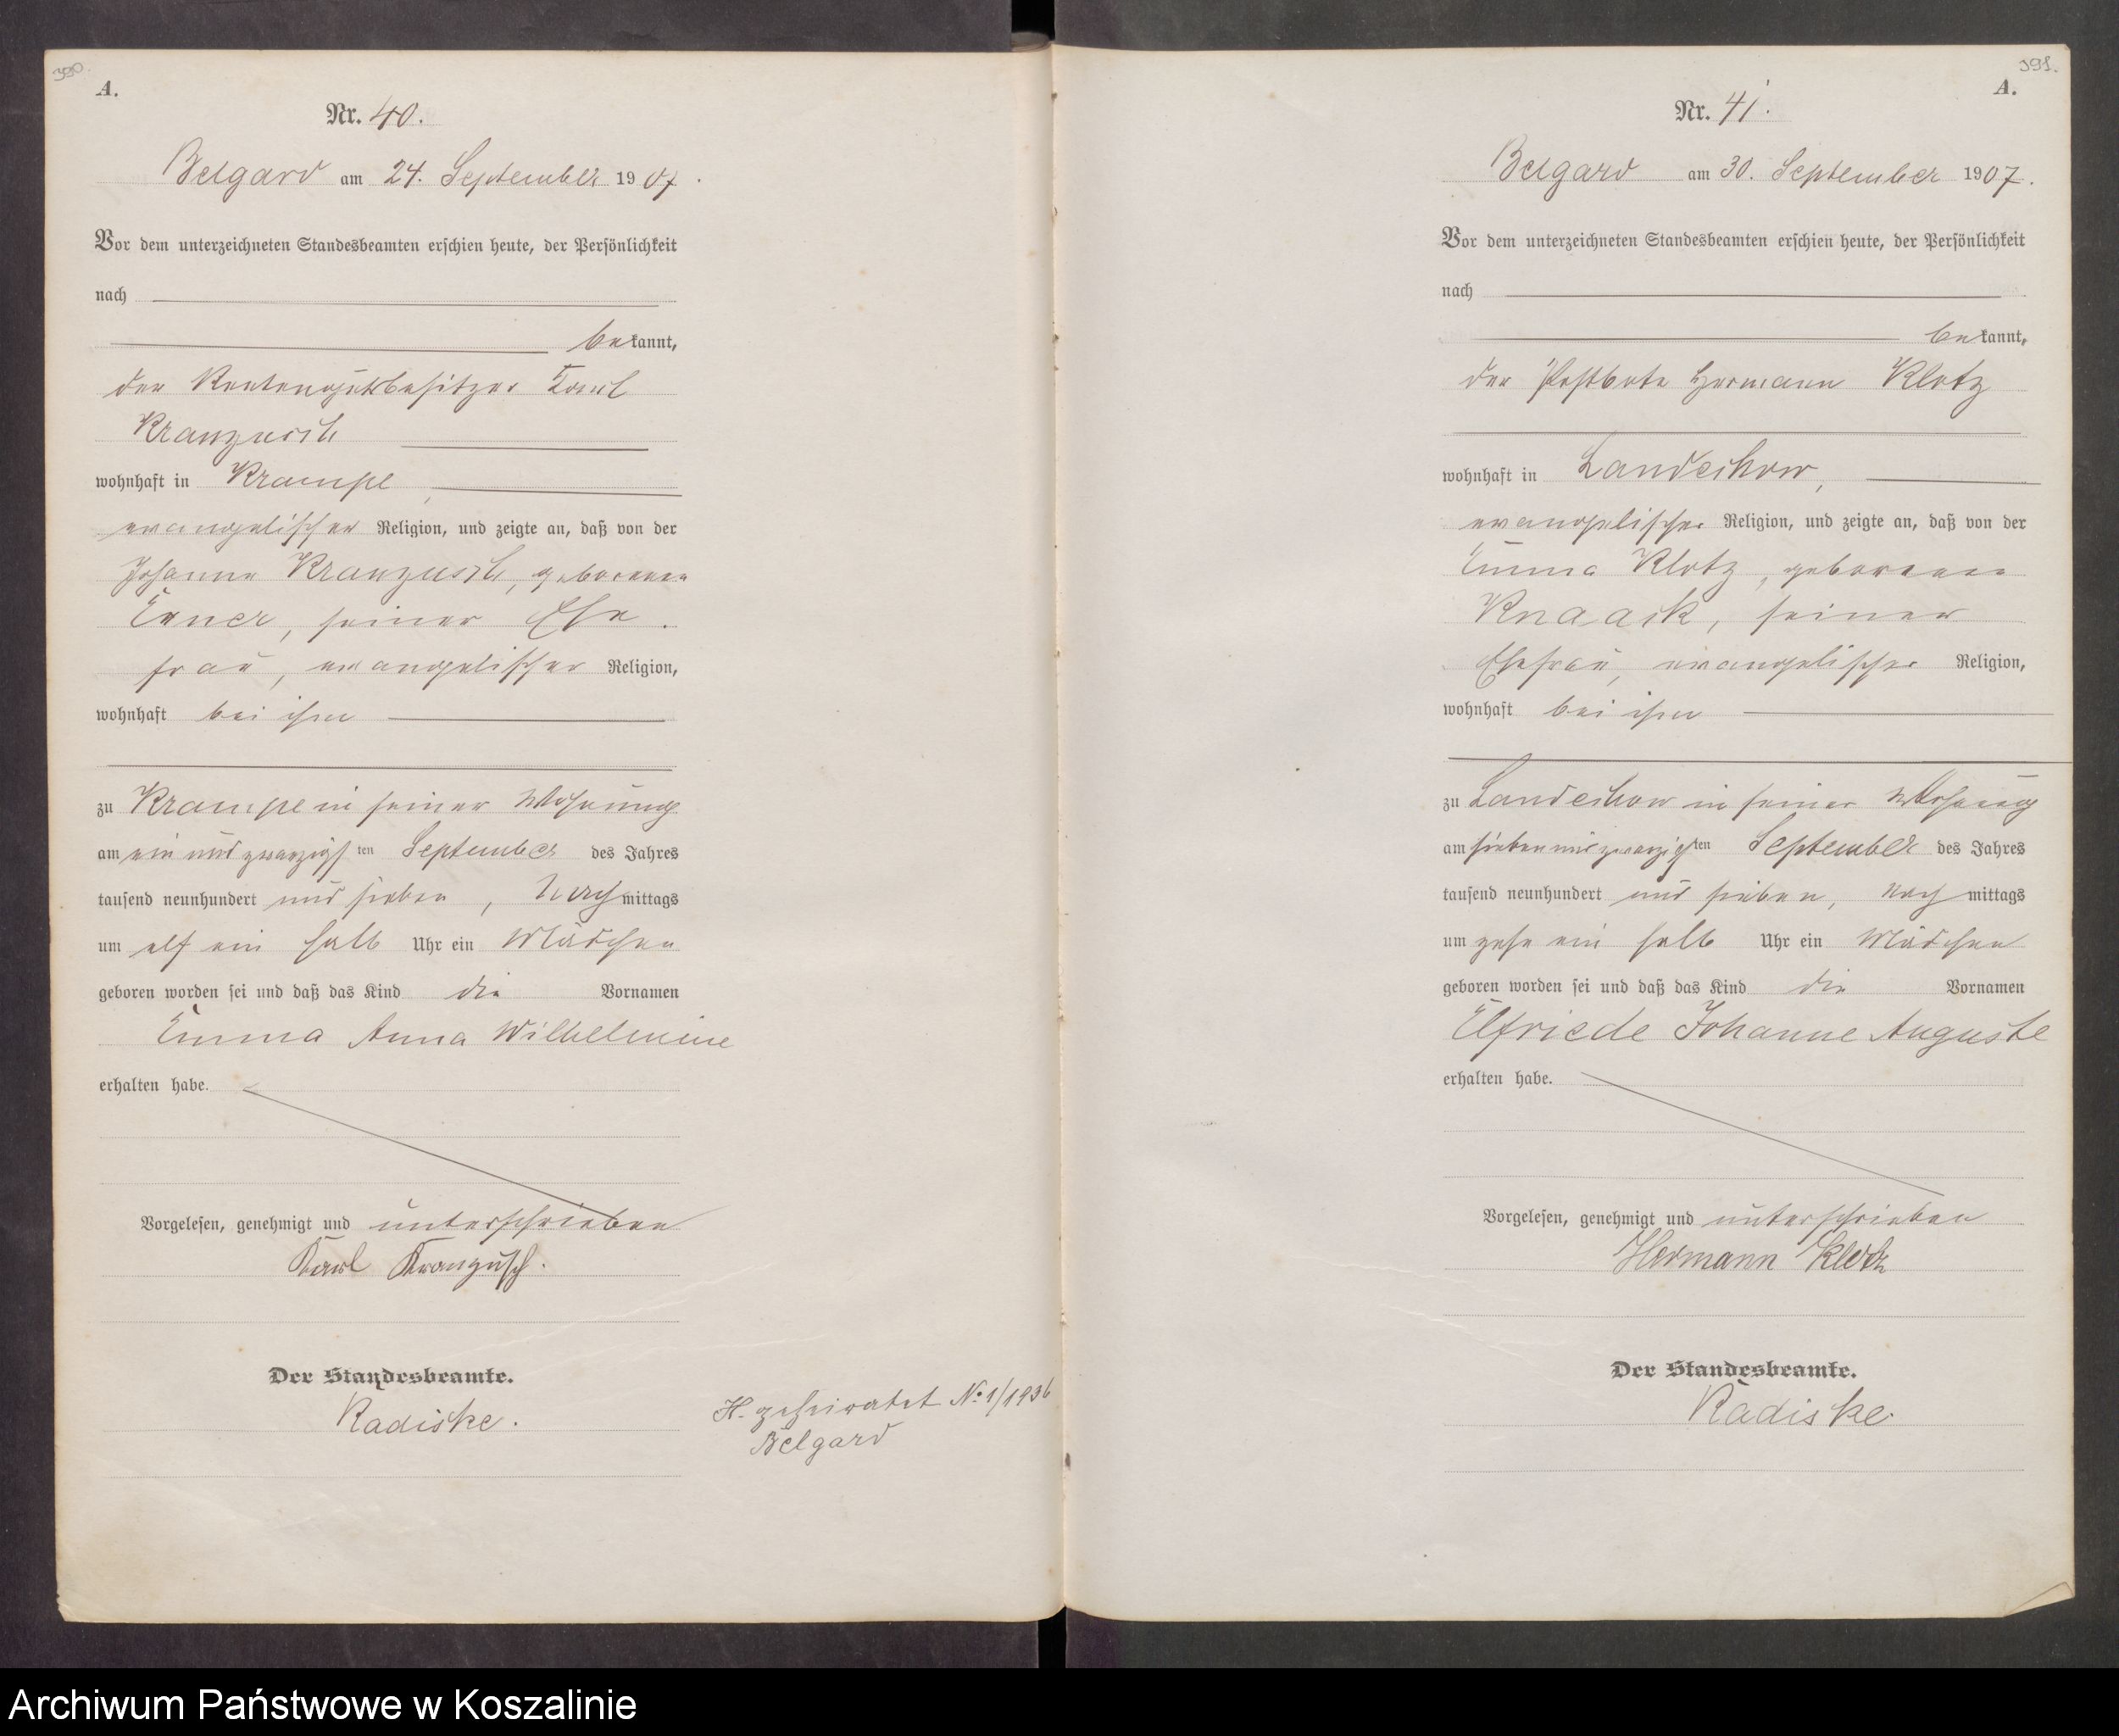 390.
A.
Nr. 40.
Belgard am 24. September 1907.
Vor dem unterzeichneten Standesbeamten erschien heute, der Persönlichkeit
nach
bekannt,
der Rentengutsbesitzer Karl
Kranzusch
wohnhaft in Krampe,
evangelischer Religion, und zeigte an, daß von der
Johanne Kranzusch, geborenen
seiner Ehe-
frau, evangelischer Religion,
wohnhaft bei ihm
zu Krampe in seiner Wohnung
am ein und zwanzigsten September des Jahres
tausend neunhundert und sieben, Nachmittags
um elf ein halb Uhr ein Mädchen
geboren worden sei und daß das Kind die Vornamen
Emma Anna Wilhelmine
erhalten habe.
Vorgelesen, genehmigt und unterschrieben
Karl Kranzusch.
Der Standesbeamte.
Radiske.
H. geheiratet No. 1/1936
Belgard
391.
A.
Nr. 41.
Belgard am 30. September 1907.
Vor dem unterzeichneten Standesbeamten erschien heute, der Persönlichkeit
nach
bekannt,
der Postbote Hermann Klotz
wohnhaft in Landechow,
evangelischer Religion, und zeigte an, daß von der
Emma Klotz, geborenen
Knaack, seiner
Ehefrau, evangelischer Religion,
wohnhaft bei ihm
zu Landechow in seiner Wohnung
am sieben und zwanzigsten September des Jahres
tausend neunhundert und sieben, Nachmittags
um zehn ein halb Uhr ein Mädchen
geboren worden sei und daß das Kind die Vornamen
Elfriede Johanne Auguste
erhalten habe.
Vorgelesen, genehmigt und unterschrieben
Hermann Klotz
Der Standesbeamte.
Radiske.
Archiwum Państwowe w Koszalinie